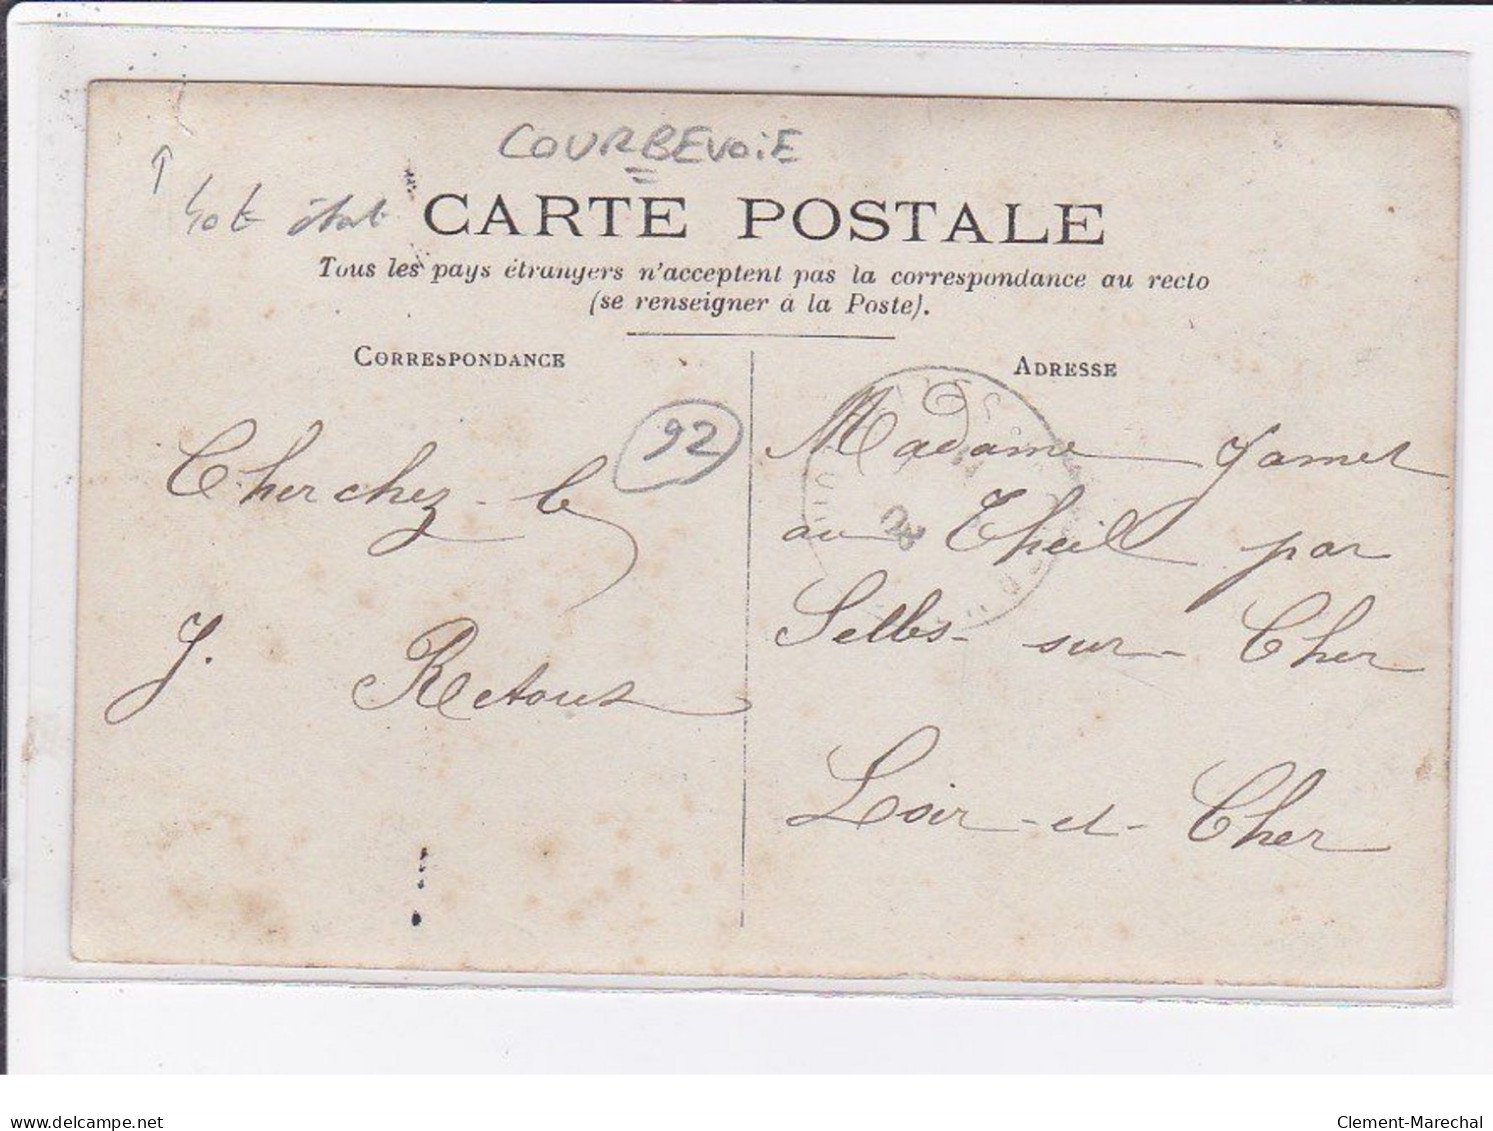 COURBEVOiE
CARTE POSTALE
Tous les pays étrangers n'acceptent pas la correspondance au recto
(se renseigner à la Poste).
CORRESPONDANCE
ADRESSE
92
Cherchez-le
J. Retout
Madame Jamet
au Theil par
Selles-sur-Cher
Loir-et-Cher
delcampe.net
Clement-Marechal